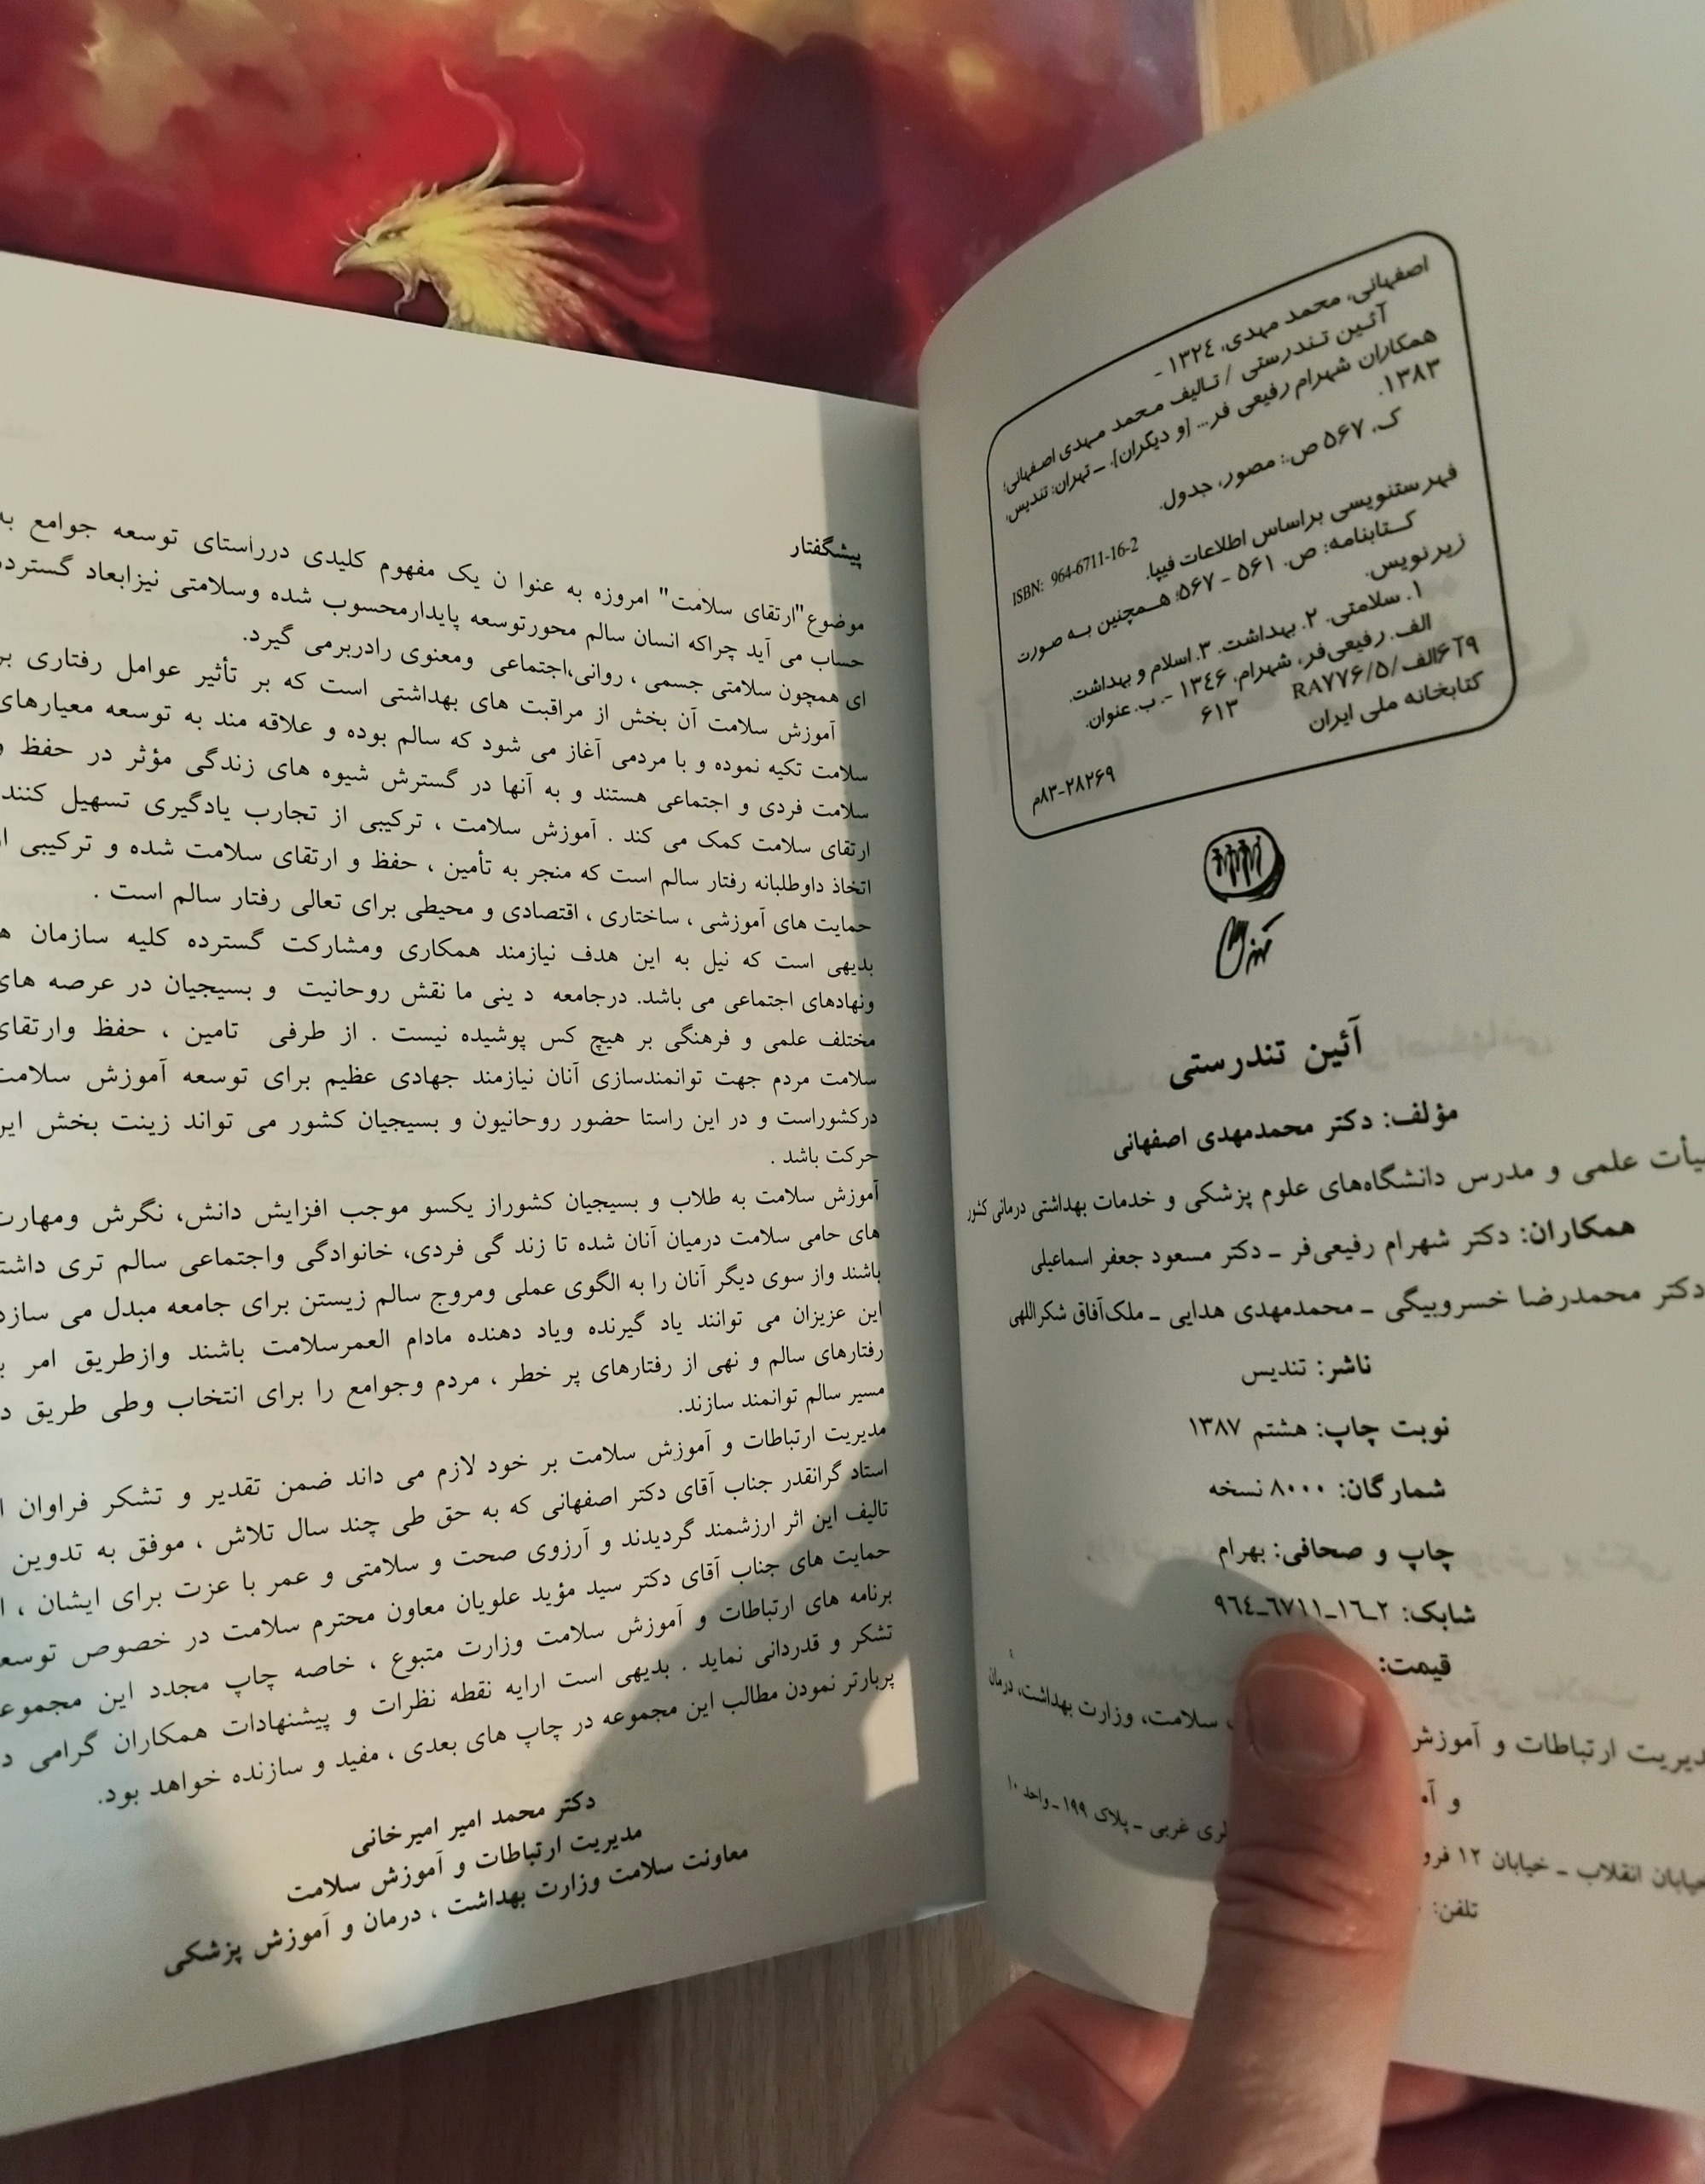 اصفهانی، محمد مهدی، ۱۳۲۴ -
آئین تندرستی / تالیف محمد مهدی اصفهانی؛
همکاران شهرام رفیعی فر... [و دیگران]. ـ تهران: تندیس،
۱۳۸۳.
ک، ۵۶۷ ص.: مصور، جدول.
ISBN: 964-6711-16-2
فهرستنویسی براساس اطلاعات فیپا.
کتابنامه: ص. ۵۶۱ - ۵۶۷؛ همچنین به صورت
زیرنویس.
۱. سلامتی. ۲. بهداشت. ۳. اسلام و بهداشت.
الف. رفیعی‌فر، شهرام، ۱۳۴۶ -. ب. عنوان.
۹آ۶الف/۵/RA۷۷۶ ۶۱۳
کتابخانه ملی ایران
م۸۳-۲۸۲۶۹
تندیس
آئین تندرستی
مؤلف: دکتر محمدمهدی اصفهانی
علمی و مدرس دانشگاه‌های علوم پزشکی و خدمات بهداشتی درمانی کشور
همکاران: دکتر شهرام رفیعی‌فر ـ دکتر مسعود جعفر اسماعیلی
دکتر محمدرضا خسروبیگی ـ محمدمهدی هدایی ـ ملک‌آفاق شکراللهی
ناشر: تندیس
نوبت چاپ: هشتم ۱۳۸۷
شمارگان: ۸۰۰۰ نسخه
چاپ و صحافی: بهرام
شابک: ۲ـ۱۶ـ۶۷۱۱ـ۹۶۴
قیمت:
ارتباطات و آموزش سلامت، وزارت بهداشت، درمان
و
خیابان انقلاب ـ خیابان ۱۲ غربی ـ پلاک ۱۹۹ ـ واحد ۱۰
تلفن:
پیشگفتار
موضوع"ارتقای سلامت" امروزه به عنوا ن یک مفهوم کلیدی درراستای توسعه جوامع به
حساب می آید چراکه انسان سالم محورتوسعه پایدارمحسوب شده وسلامتی نیزابعاد گسترده
ای همچون سلامتی جسمی ، روانی،اجتماعی ومعنوی رادربرمی گیرد.
آموزش سلامت آن بخش از مراقبت های بهداشتی است که بر تأثیر عوامل رفتاری بر
سلامت تکیه نموده و با مردمی آغاز می شود که سالم بوده و علاقه مند به توسعه معیارهای
سلامت فردی و اجتماعی هستند و به آنها در گسترش شیوه های زندگی مؤثر در حفظ و
ارتقای سلامت کمک می کند . آموزش سلامت ، ترکیبی از تجارب یادگیری تسهیل کننده
اتخاذ داوطلبانه رفتار سالم است که منجر به تأمین ، حفظ و ارتقای سلامت شده و ترکیبی از
حمایت های آموزشی ، ساختاری ، اقتصادی و محیطی برای تعالی رفتار سالم است .
بدیهی است که نیل به این هدف نیازمند همکاری ومشارکت گسترده کلیه سازمان ها
ونهادهای اجتماعی می باشد. درجامعه د ینی ما نقش روحانیت و بسیجیان در عرصه های
مختلف علمی و فرهنگی بر هیچ کس پوشیده نیست . از طرفی تامین ، حفظ وارتقای
سلامت مردم جهت توانمندسازی آنان نیازمند جهادی عظیم برای توسعه آموزش سلامت
درکشوراست و در این راستا حضور روحانیون و بسیجیان کشور می تواند زینت بخش این
حرکت باشد .
آموزش سلامت به طلاب و بسیجیان کشوراز یکسو موجب افزایش دانش، نگرش ومهارت
های حامی سلامت درمیان آنان شده تا زند گی فردی، خانوادگی واجتماعی سالم تری داشته
باشند واز سوی دیگر آنان را به الگوی عملی ومروج سالم زیستن برای جامعه مبدل می سازد
این عزیزان می توانند یاد گیرنده ویاد دهنده مادام العمرسلامت باشند وازطریق امر به
رفتارهای سالم و نهی از رفتارهای پر خطر ، مردم وجوامع را برای انتخاب وطی طریق در
مسیر سالم توانمند سازند.
مدیریت ارتباطات و آموزش سلامت بر خود لازم می داند ضمن تقدیر و تشکر فراوان از
استاد گرانقدر جناب آقای دکتر اصفهانی که به حق طی چند سال تلاش ، موفق به تدوین
تالیف این اثر ارزشمند گردیدند و آرزوی صحت و سلامتی و عمر با عزت برای ایشان ،
حمایت های جناب آقای دکتر سید مؤید علویان معاون محترم سلامت در خصوص توسعه
برنامه های ارتباطات و آموزش سلامت وزارت متبوع ، خاصه چاپ مجدد این مجموعه
تشکر و قدردانی نماید . بدیهی است ارایه نقطه نظرات و پیشنهادات همکاران گرامی در
پربارتر نمودن مطالب این مجموعه در چاپ های بعدی ، مفید و سازنده خواهد بود.
دکتر محمد امیر امیرخانی
مدیریت ارتباطات و آموزش سلامت
معاونت سلامت وزارت بهداشت ، درمان و آموزش پزشکی